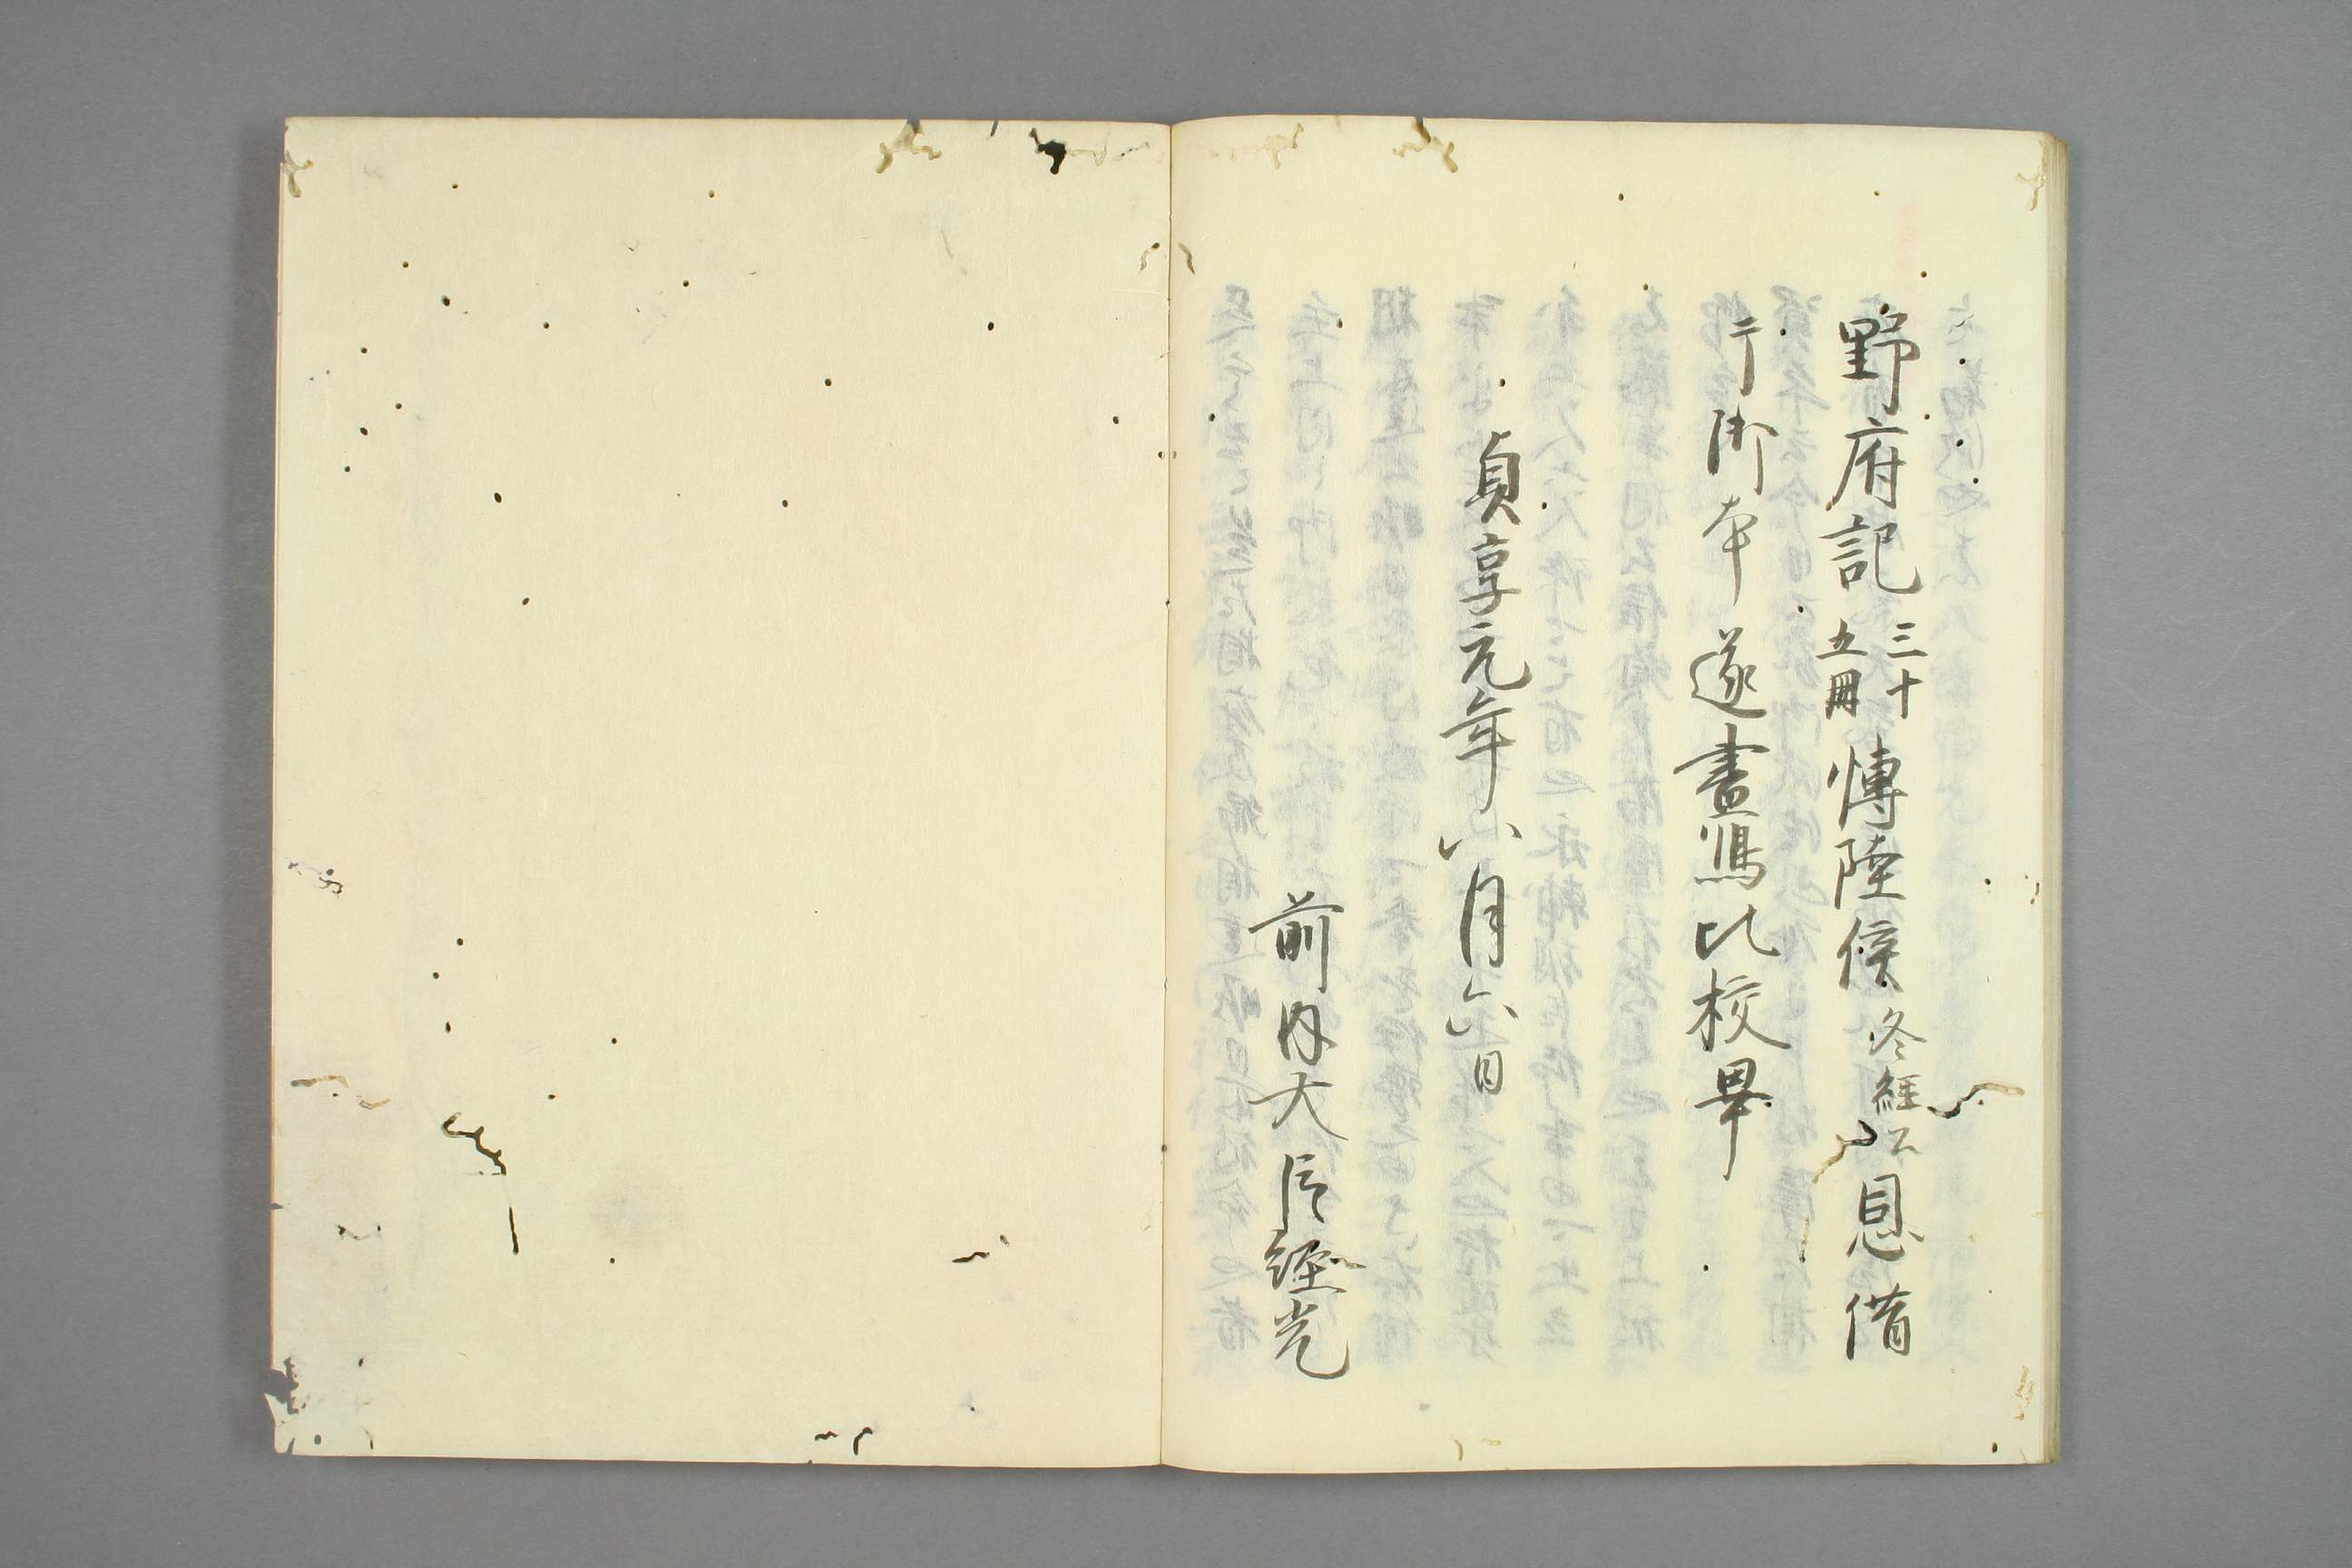 野府記三十五冊愽陸候冬経公恩借
于御本遂書寫比校畢
貞享元年八月六日
前内大臣經光